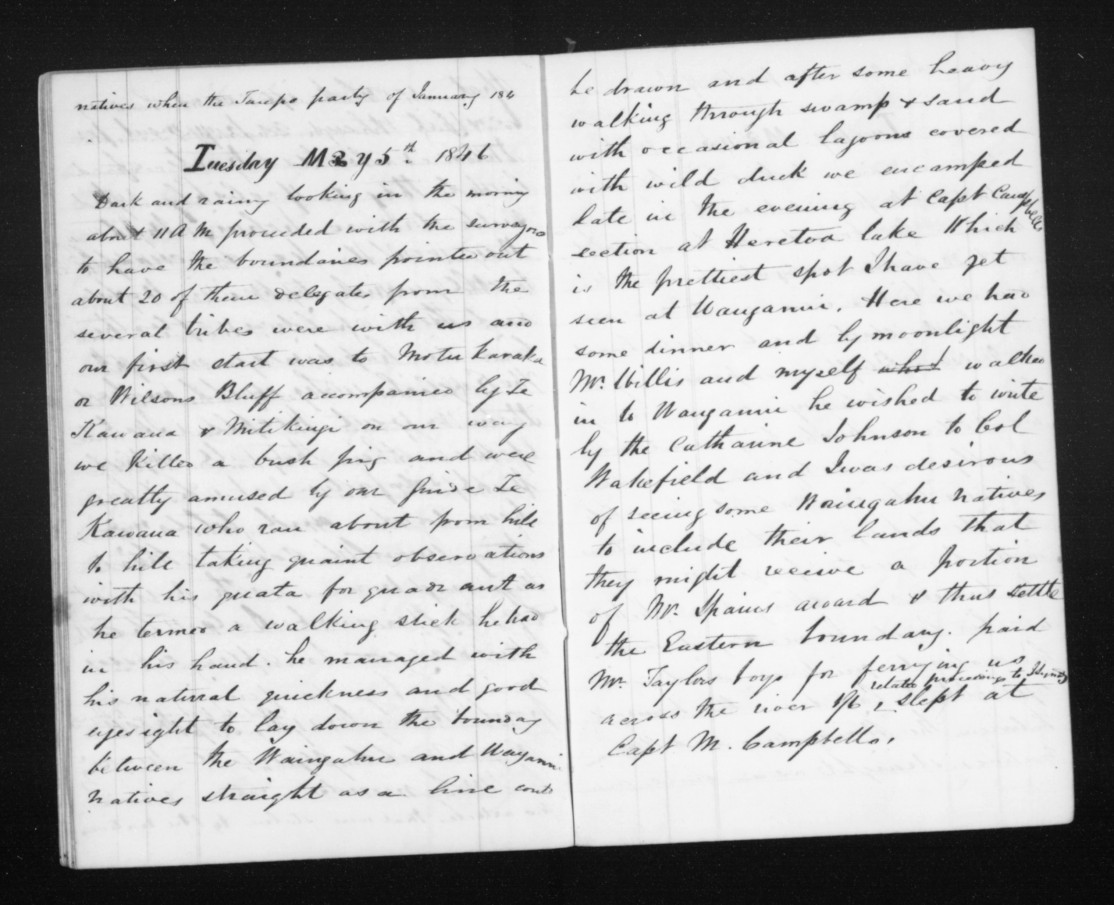 natives when the Taupo party of January 184
Tuesday May 5th 1846
Dark and rainy looking in the morning
about 11 A M proceeded with the surveyors
to have the boundaries pointed out
about 20 of these delegates from the
several tribes were with us and
our first start was to Motu karaka
or Wilsons Bluff accompanied by Te
Kawana & Mitikingi on our way
we killed a bush pig and were
greatly amused by our guide Te
Kawana who ran about from hill
to hill taking quaint observations
with his quata for quadrant as
he termed a walking stick he had
in his hand. he managed with
his natural quickness and good
eyesight to lay down the bounday
between the Waingahu and Wanganui
natives straight as a line could
be drawn and after some heavy
walking through swamp & sand
with occasional lagoons covered
with wild duck we encamped
late in the evening at Capt Campbells
section at Heretoa lake Which
is the prettiest spot I have yet
seen at Wanganui. Here we had
some dinner and by moonlight
Mr. Wills and myself walked
in to Wanganui he wished to write
by the Catharine Johnson to Col
Wakefield and I was desirous
of seeing some Waingahu natives
to include their lands that
they might receive a portion
of Mr. Spains award & thus settle
the Eastern boundary. paid
Mr. Taylors boys for ferrying us
across the river related proceedings to slept at
Capt M. Campbells.